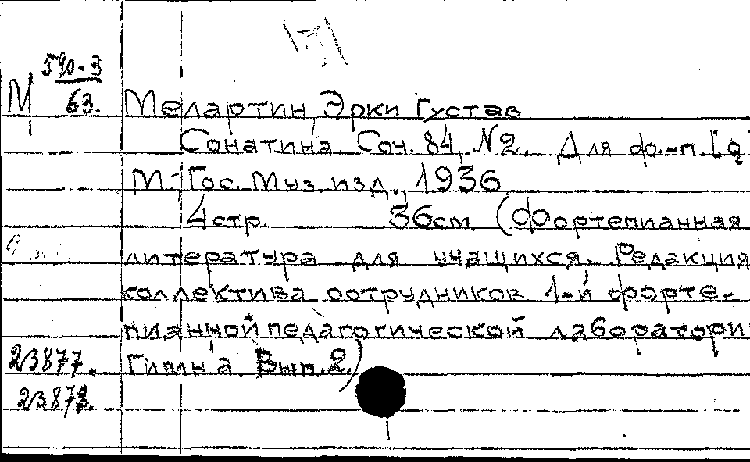 М 590-3
63. Мелартин, Эрки Густав
Сонатина. Соч. 84, №2. Для фо.-п. [g
М. Гос. Муз. изд., 1936
4 стр. 36 см (Фортепианная
литература для учащихся. Редакция
коллектива сотрудников 1-й форте-
пианной педагогической лаборатори
23877. Вып. 2)
23878.